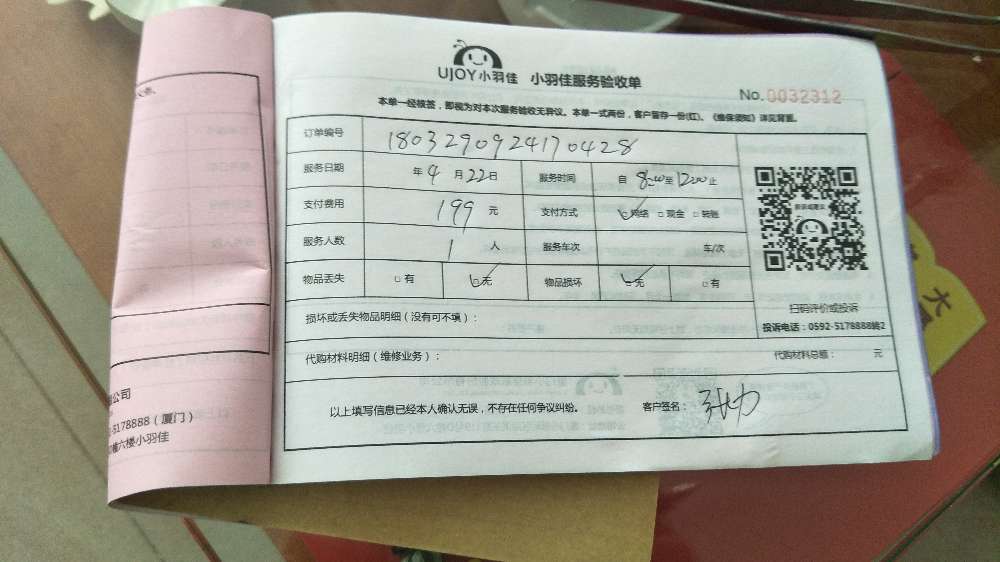 UJOY小羽佳 小羽佳服务验收单
No. 0032312
本单一经核签，即视为对本次服务验收无异议。本单一式两份，客户留存一份(红)，《维保须知》详见背面。
订单编号 1803290924170428
服务日期 年 4 月 22 日 服务时间 自 8:00 至 12:00 止
支付费用 199 元 支付方式 网络 □ 现金 □ 转账
服务人数 1 人 服务车次 车/次
物品丢失 □ 有 □ 无 物品损坏 □ 无 □ 有
扫码评价或投诉
投诉电话：0592-5178888转2
损坏或丢失物品明细（没有可不填）：
代购材料明细（维修业务）： 代购材料总额： 元
以上填写信息已经本人确认无误，不存在任何争议纠纷。 客户签名：
公司
-5178888（厦门）
幢六楼小羽佳